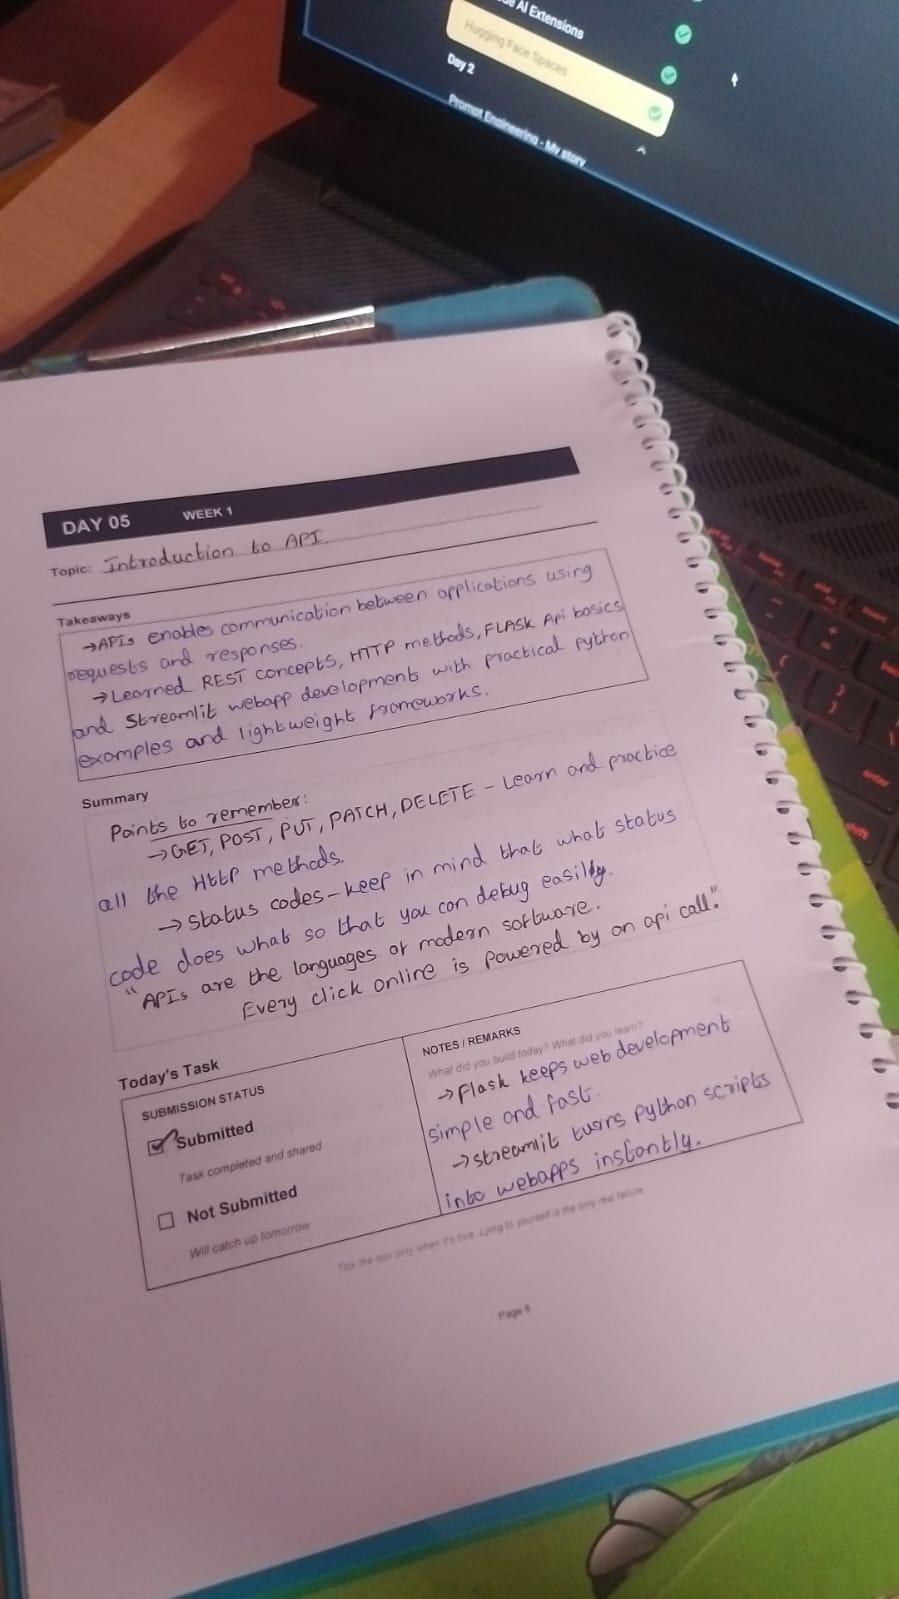 AI Extensions
Hugging Face Spaces
Day 2
Prompt Engineering - My story
DAY 05 WEEK 1
Topic: Introduction to API
Takeaways
→APIs enables communication between applications using
requests and responses.
→Learned REST concepts, HTTP methods, FLASK Api basics
and Streamlit webapp developments with practical python
examples and lightweight frameworks.
Summary
Points to remember:
→GET, POST, PUT, PATCH, DELETE - Learn and practice
all the Http methods.
→Status codes - keep in mind that what status
code does what so that you can debug easily.
"APIs are the languages of modern software.
Every click online is powered by an api call."
Today's Task
SUBMISSION STATUS
Submitted
Task completed and shared
Not Submitted
Will catch up tomorrow
NOTES / REMARKS
What did you build today? What did you learn?
→Flask keeps web development
simple and fast.
→Streamlit turns python scripts
into webapps instantly.
Tick the box only when it's true. Lying to yourself is the only real failure.
Page 8